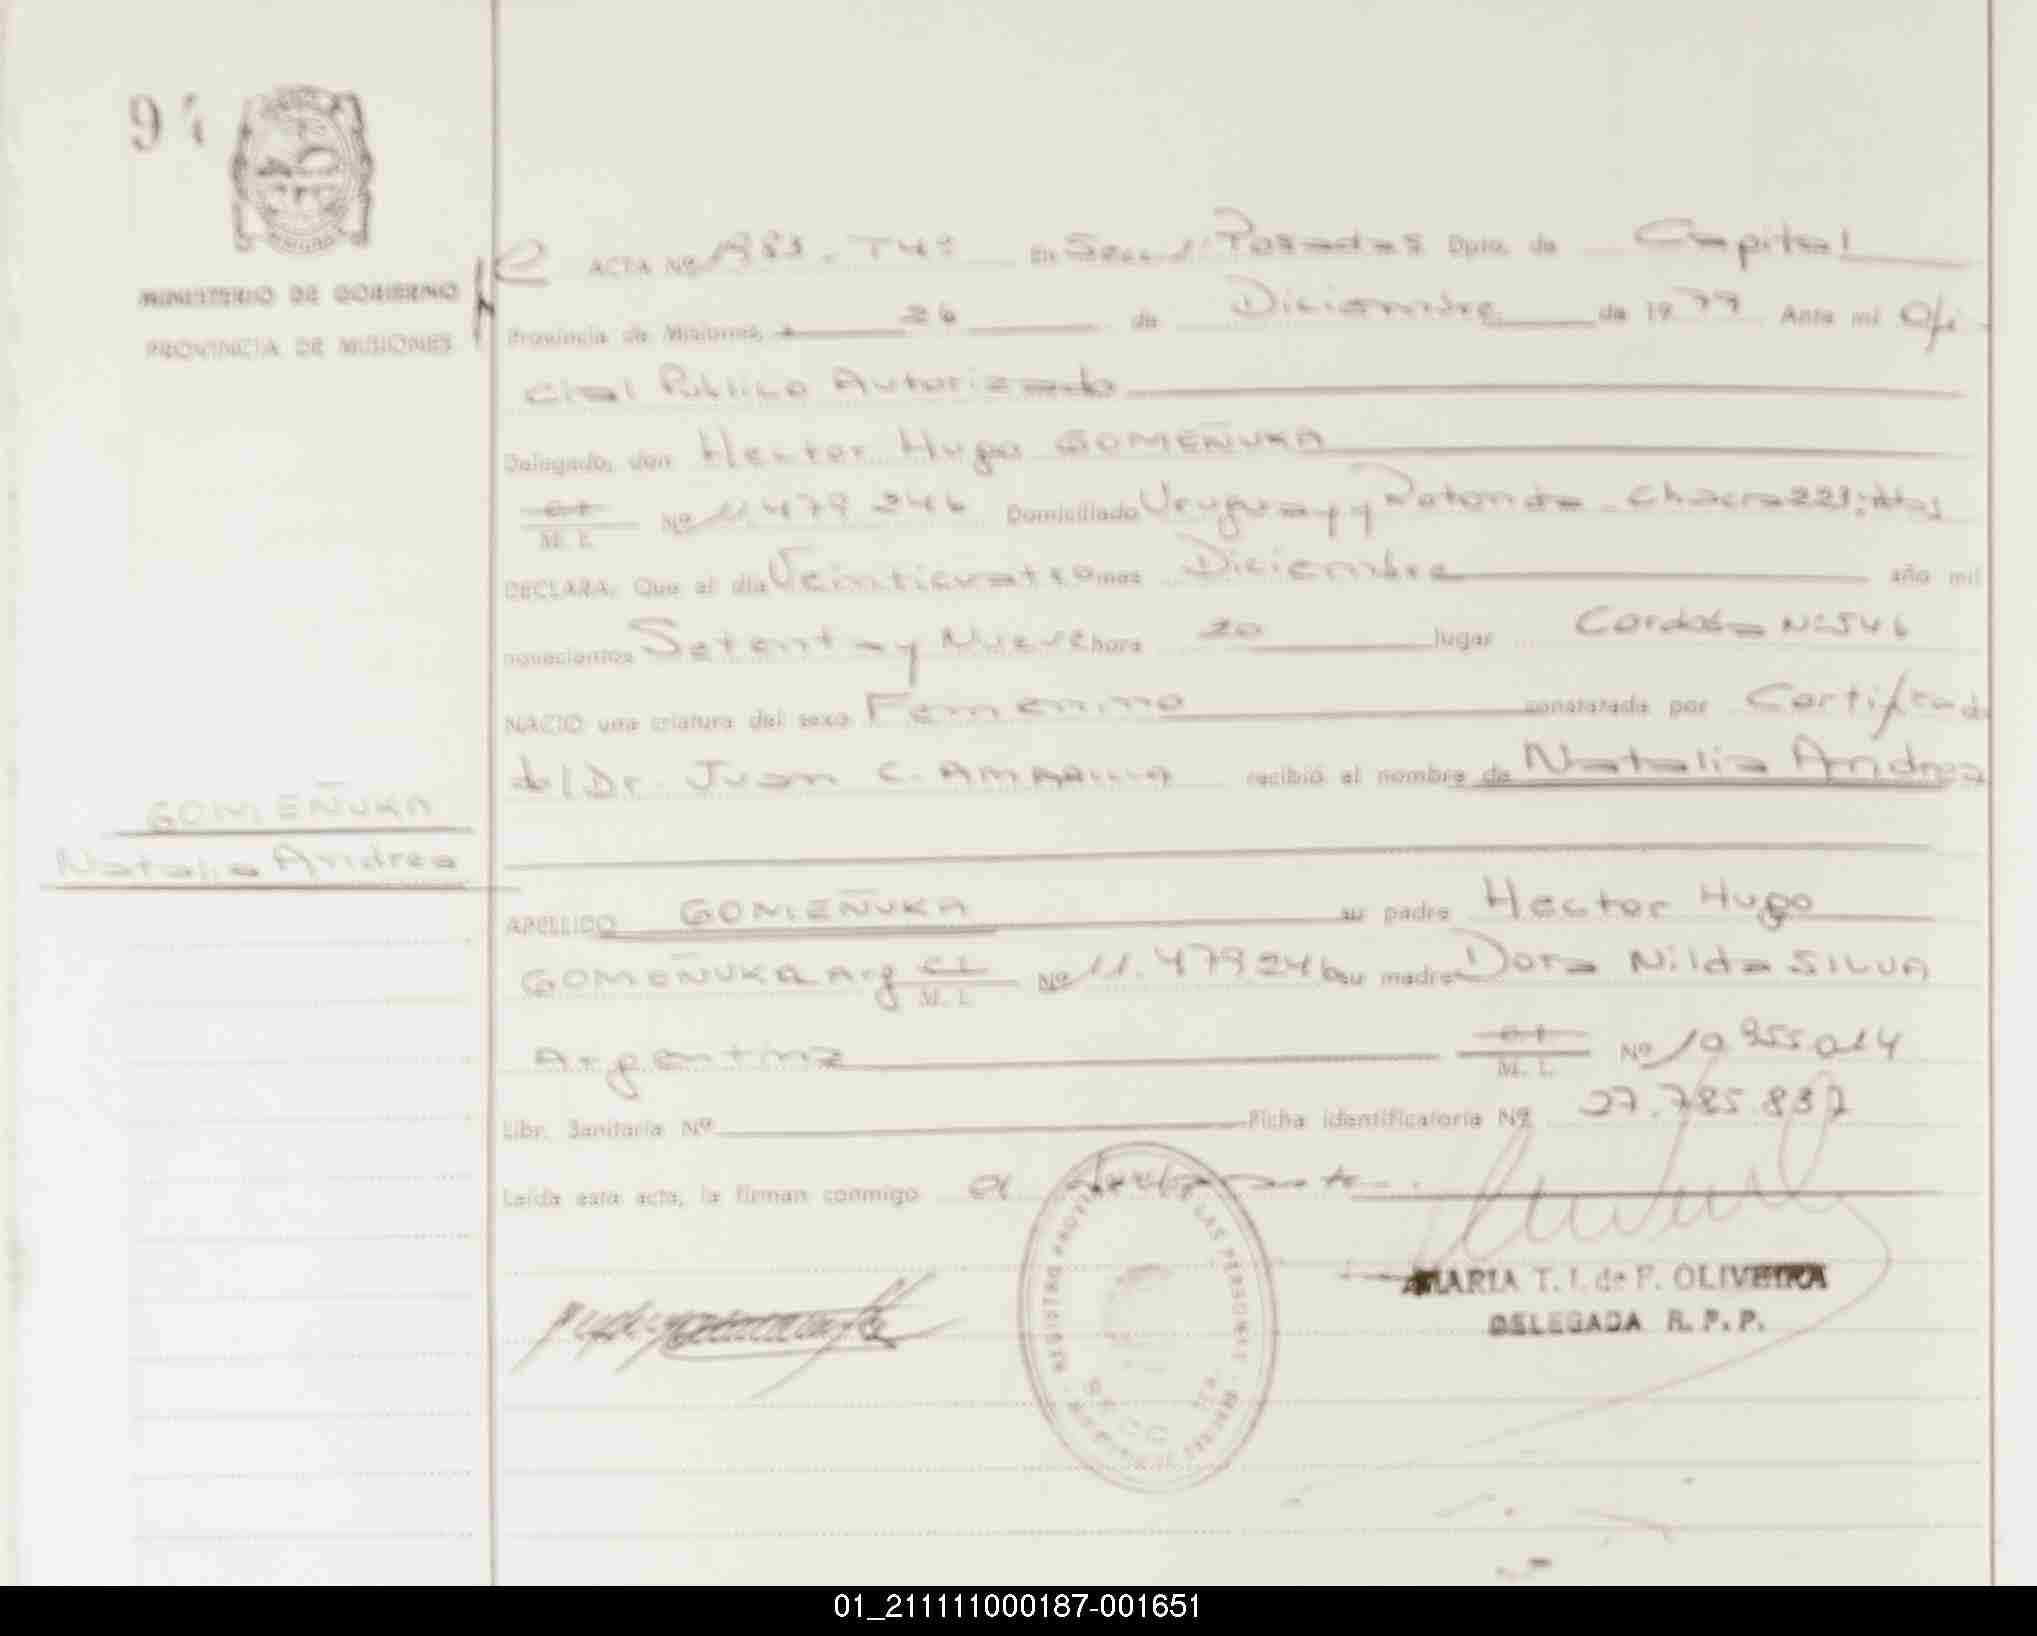 94
MINISTERIO DE GOBIERNO
PROVINCIA DE MISIONES
ACTA Nº 983 - T4º En Secc. 1ª Posadas Dpto. de Capital
Provincia de Misiones, a 26 de Diciembre de 1979 Ante mi Ofi-
cial Publico Autorizado
Delegado, don Hector Hugo GOMEÑUKA
C.I. M. I. Nº 11.479.246 Domiciliado Uruguay y Rotonda - Chacra 221,
DECLARA: Que el día Veinticuatro mes Diciembre año mil
novecientos Setenta y Nueve hora 20 lugar Cordoba Nº 546
NACIO una criatura del sexo Femenino constatada por Certificado
del Dr. Juan C. AMARILLA recibió el nombre de Natalia Andrea
GOMEÑUKA
Natalia Andrea
APELLIDO GOMEÑUKA su padre Hector Hugo
GOMEÑUKA Arg C.I. M. I. Nº 11.479.246 su madre Dora Nilda SILVA
Argentina C.I. M. I. Nº 10.955.014
Libr. Sanitaria Nº Ficha identificatoria Nº 27.785.837
Leída esta acta, la firman conmigo el declarante.
REGISTRO PROVINCIAL DE LAS PERSONAS
SECC. 1ra.
MARIA T. I. de F. OLIVEIRA
DELEGADA R. P. P.
01_211111000187-001651